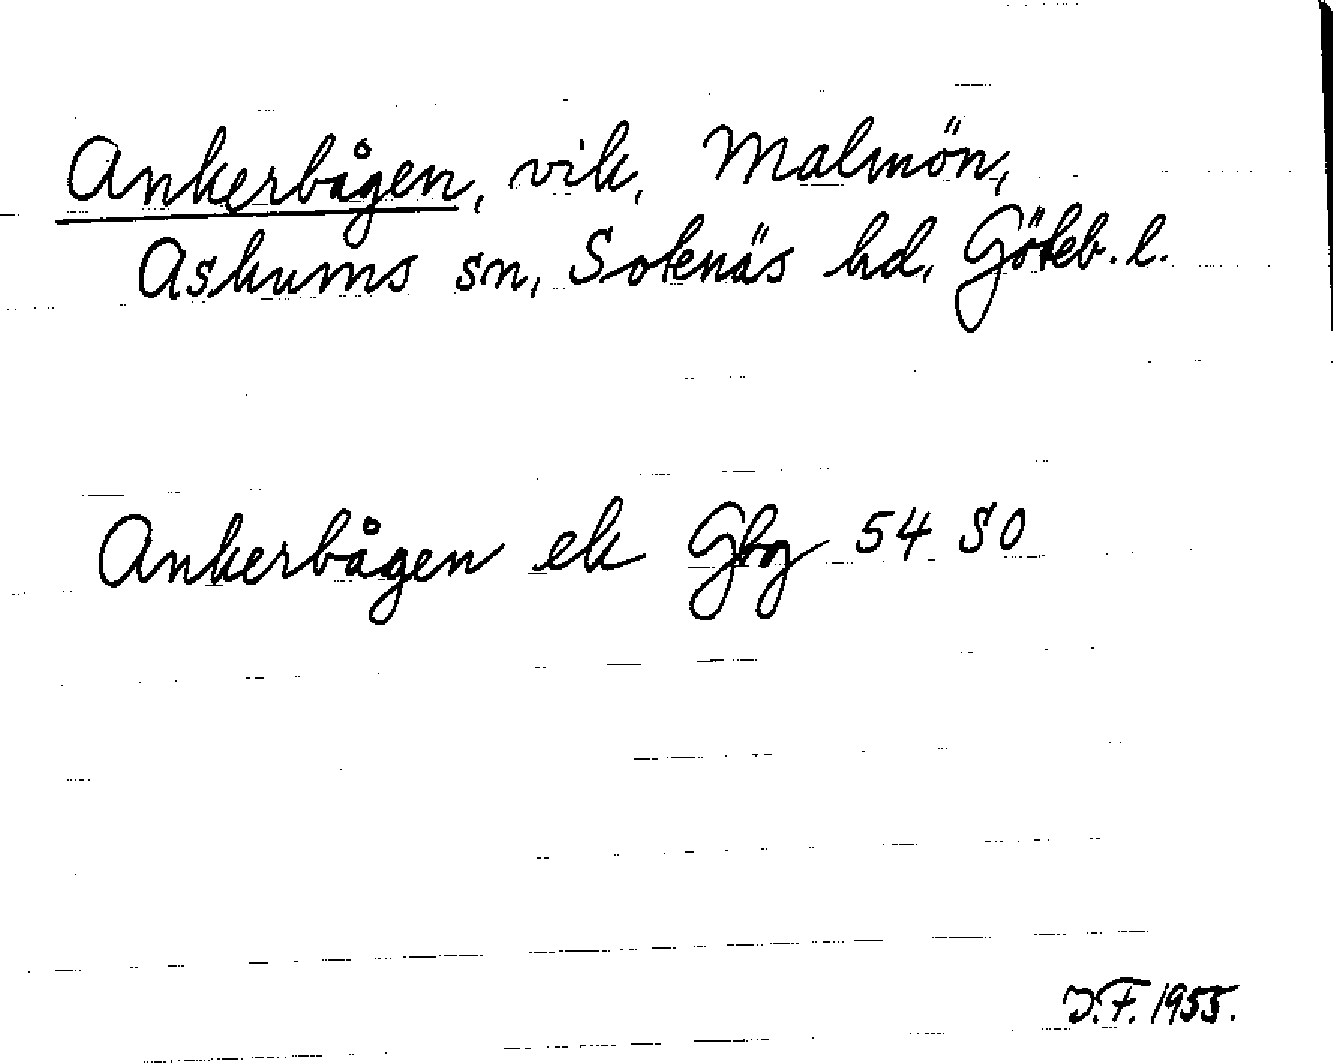 Ankerbågen, vik, Malmön,
Askums sn, Sotenäs hd, Göteb. l.
Ankerbågen ek Gbg 54 SO
J.F. 1955.